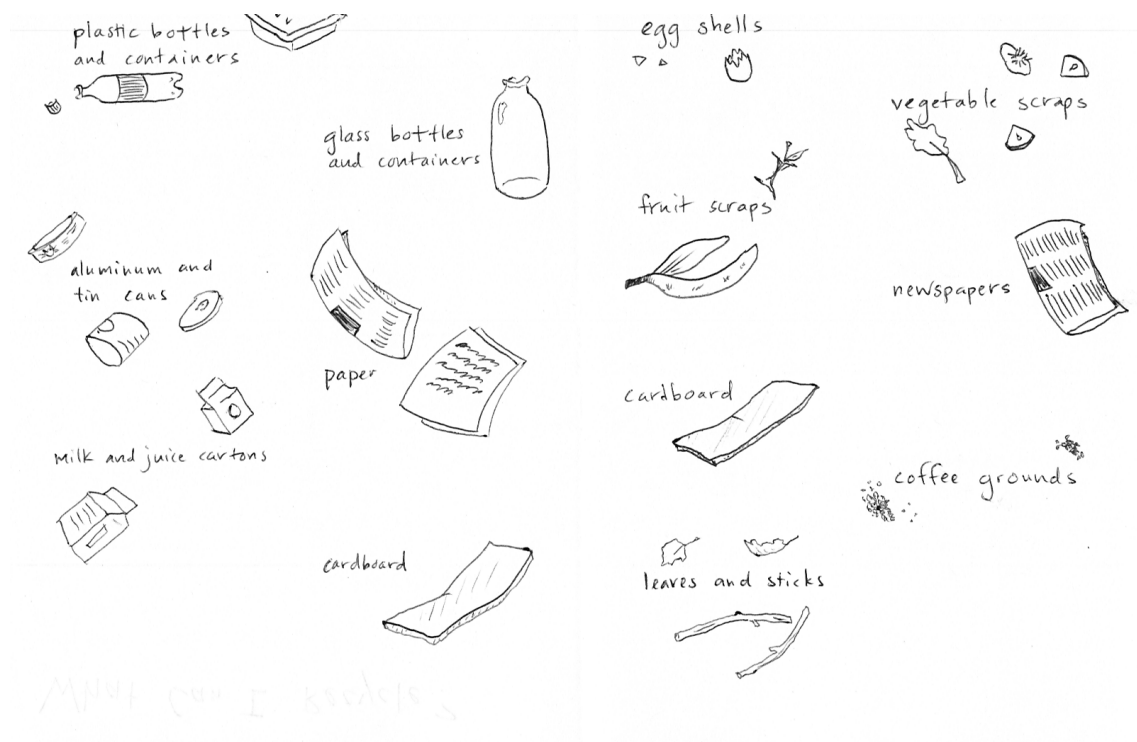 plastic bottles
and containers
glass bottles
and containers
aluminum and
tin cans
paper
milk and juice cartons
cardboard
What Can I Recycle?
egg shells
vegetable scraps
fruit scraps
newspapers
cardboard
coffee grounds
leaves and sticks